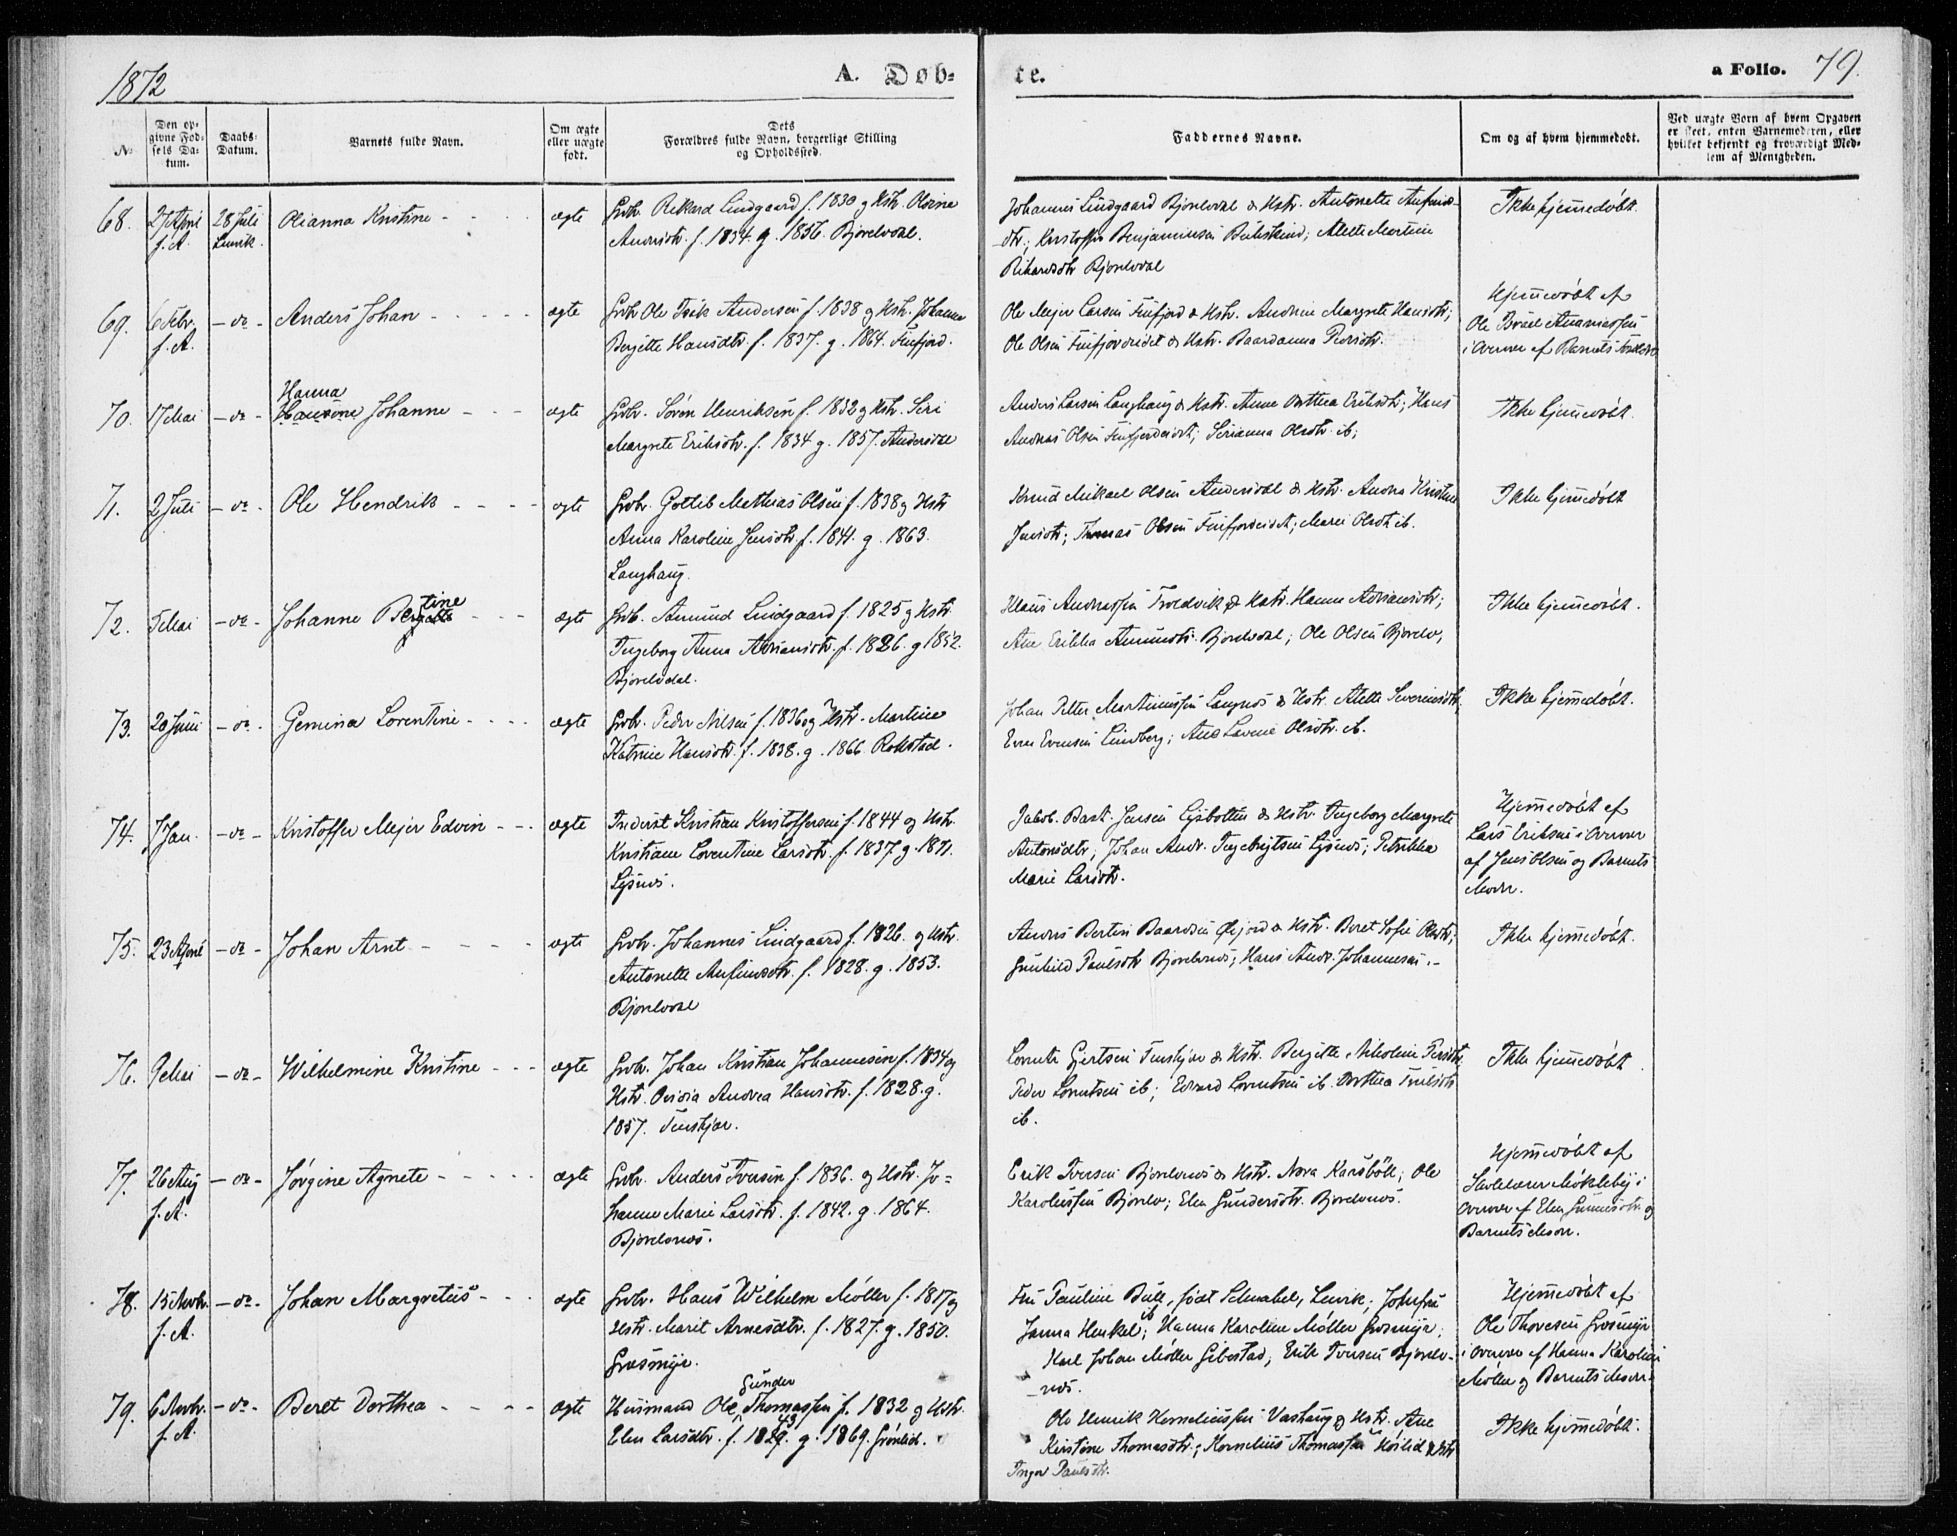 1872
A. Døb-
te.
a Folio. 79.
№
Den op-
givne Fød-
sels Da-
tum.
Daabs-
Datum.
Barnets fulde Navn.
Om ægte
eller uægte
født.
Dets
Forældres fulde Navn, borgerlige Stilling
og Opholdssted.
Faddernes Navne.
Om og af hvem hjemmedøbt.
Ved uægte Born af hvem Opgaven
er skeet, enten Barnemoderen, eller
hvilket bekjendt og troværdigt Med-
lem af Menigheden.
68. 27 April f. A. 28 Juli Lenvik. Olianna Kristine ægte
Grbr. Rikard Lindgaard f. 1830 og Hstr. Oleine
f. 1834. g. 1856. Bjorelvdal.
Johannes Lindgaard Bjorelvdal & Hstr. Antonette
dtr.; Kristoffer Benjaminsen; Alette Martine
Rikardsdtr Bjorelvdal
Ikke hjemmedøbt.
69. 6 Febr. f. A. - do - Anders Johan ægte
Grbr Ole Isak Andersen f. 1838 og Hstr. Johanna
Bergitte Hansdtr. f. 1837. g. 1864. Finfjord.
Ole Mejer Larsen Finfjord & Hstr. Andrine Margrete Hansdtr;
Ole Olsen Finfjordeidet & Hstr. Baardanna Persdtr.
Hjemmedøbt af
Ole Israel Ananiassen
i Overvær af Barnets Forældre
70. 17 Mai - do - Hanna
Hansine Johanne ægte
Grbr. Søren Henriksen f. 1832 og Hstr. Seri
Margrete Eriksdtr. f. 1834 g. 1857. Andersdal
Anders Larsen Langhaug & Hstr. Anne Dorthea Eriksdtr; Hans
Andreas Olsen Finfjordeidet; Serianna Olsdtr. ib;
Ikke hjemmedøbt.
71. 2 Juli - do - Ole Hendrik ægte
Grbr. Gotlib Mathias Olsen f. 1838 og Hstr
Anna Karoline Jensdtr. f. 1841. g. 1863.
Langhaug.
Knud Mikael Olsen Andersdal & Hstr. Andrea Kristine
Jensdtr; Thomas Olsen Finfjordeidet; Maren Olsdtr ib.
Ikke hjemmedøbt
72. 5 Mai - do - Johanne Bergitte
tine ægte
Grbr. Amund Lindgaard f. 1825 og Hstr
Ingeborg Anna Adriansdtr. f. 1826. g 1852.
Bjorelvdal.
Klaus Andreassen Troldvik & Hstr. Hanna Adriansdtr;
Ane Erikka Amundsdtr. Bjorelvdal; Ole Olsen Bjorelv,
Ikke hjemmedøbt.
73. 20 Juni - do - Gemina Lorentine ægte
Grbr. Peder Nilsen f. 1836 og Hstr. Martine
Katrine Hansdtr. f. 1838. g. 1866. Rokstad.
Johan Petter Martinussen Langnes & Hstr. Alette Severinsdtr,
Even Evensen Lindberg; Ane Lovine Olsdtr. ib.
Ikke hjemmedøbt.
74. 7 Jan. - do - Kristoffer Mejer Edvin ægte
Inderst Kristian Kristoffersen f. 1844 og Hstr.
Kristiane Lorentine Larsdtr. f. 1837. g. 1871.
Lysnes.
Jakob. Bast. Jensen Lysbotten & Hstr. Ingeborg Margrete
Antonsdtr, Johan Andr. Ingebrigtsen Lysnes; Petrikka
Marie Larsdtr.
Hjemmedøbt af
Lars Eriksen i Overvær
af Jens Olsen og Barnets
Moder.
75. 23 April - do - Johan Arnt ægte
Grbr. Johannes Lindgaard f. 1826. og Hstr.
Antonette f. 1828. g. 1853.
Bjorelvdal
Andreas Bertin Baardsen & Hstr. Beret Sofie Olsdtr;
Gunhild Paulsdtr Bjorelvnes; Hans Andr. Johannesen.
Ikke hjemmedøbt.
76. 9 Mai - do - Wilhelmine Kristine ægte
Grbr. Johan Kristian Johannesen f. 1834 og
Hstr. Andrea Hansdtr. f. 1828. g.
1857. Tenskjær.
Lorents Gjertsen Tenskjær & Hstr. Bergitte Nikoline Persdtr,
Peder Lorentsen ib; Edvard Lorentsen ib. Dorthea
ib.
Ikke hjemmedøbt.
77. 26 Aug f. A. - do - Jørgine Agnete ægte
Grbr. Anders Iversen f. 1836. og Hstr. Jo-
hanna Marie Larsdtr. f. 1842. g. 1864.
Bjorelvnes.
Erik Iversen Bjorelvnes & Hstr. Nora; Ole
Karolussen Bjorelv; Elen Gundersdtr. Bjorelvnes.
Hjemmedøbt af
Skolelærer Møkleby i
Overvær af Elen Gundersdtr. og
Barnets Moder.
78. 15 Novbr. f. A. - do - Johan Margretius ægte
Grbr. Hans Wilhelm Møller f. 1817 og
Hstr. Marit Arnesdtr. f. 1827. g. 1850.
Grasmyr.
Fru Pauline Bull, født Schnabel, Lenvik; Jomfru
Janna Henkel ib; Hanna Karoline Møller Grasmyr;
Karl Johan Møller Gibostad; Erik Iversen Bjorelv-
nes.
Hjemmedøbt af
Ole Thoresen Grasmyr
i Overvær af Hanna Karoline
Møller og Barnets Moder
79. 6 Novbr. f. A. - do - Beret Dorthea ægte
Gunder
Husmand Ole Thomassen f. 1832 og Hstr.
43
Elen Larsdtr. f. 1829. g. 1869. Grønlid.
Ole Henrik Korneliussen Vashaug & Hstr. Ane
Kirstine Thomasdtr.; Kornelius Thomassen Høilid & Hstr
Inger Paulsdtr.
Ikke hjemmedøbt.